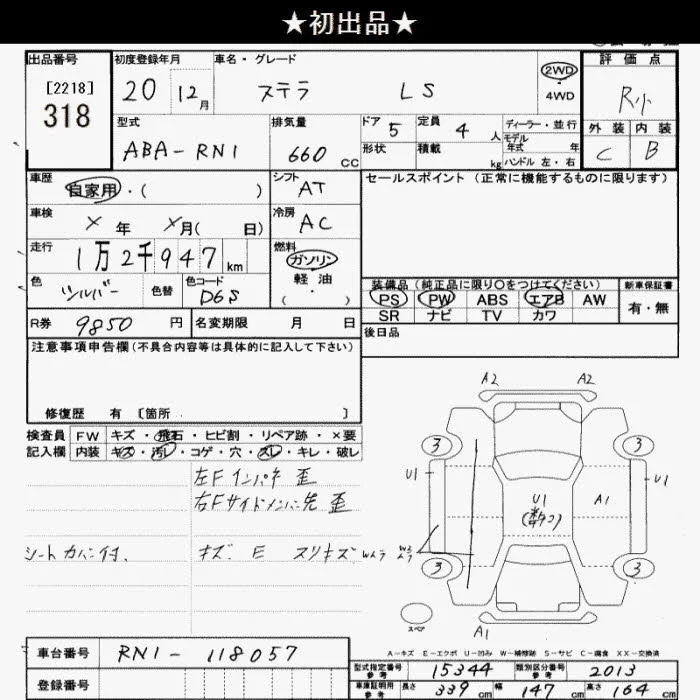 ★初出品★
出品番号 初度登録年月 車名・グレード 評価点
[2218] 20 12月 ステラ LS 2WD ・ 4WD R小
318 型式 排気量 ドア 5 定員 4人 ディーラー・並行 外装 内装
ABA-RN1 660CC 形状 積載 kg モデル年式 年 ハンドル 左・右 C B
車歴 自家用・( ) シフト AT セールスポイント (正常に機能するものに限ります)
車検 × 年 ×月( 日) 冷房 AC
走行 1万2千947km 燃料 ガソリン
色 シルバー 色替 色コード D6S 軽油・( )
装備品(純正品に限り○をつけてください) 新車保証書
PS PW ABS エアB AW 有・無
R券 9850円 名変期限 月 日 SR ナビ TV カワ
注意事項申告欄(不具合内容等は具体的に記入して下さい) 後日品
修復歴 有 〔箇所 〕
検査員 FW キズ・飛石・ヒビ割・リペア跡・×要
記入欄 内装 キズ・汚レ・コゲ・穴・スレ・キレ・破レ
左Fインパネ 歪
右Fサイドメンバー先 歪
シートカバー付、 キズ. E スリキズ
A2 A2
3 3
U1 U1
U1 A1
3 3
スペア A1
A-キズ E-エクボ U-凹み W-補修跡 S-サビ C-腐食 XX-交換済
車台番号 RN1-118057 型式指定番号 参考 15344 類別区分番号 参考 2013
登録番号 車庫証明用 参考 長さ 339cm 幅 147cm 高さ 164cm